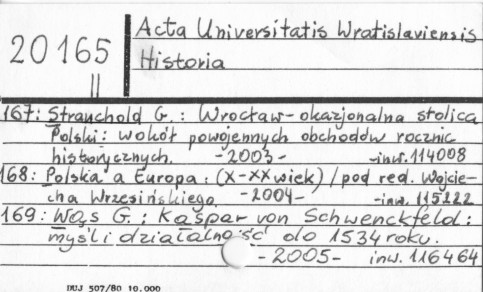 Acta Universitatis Wratislaviensis
20165
II
Historia
167: Strauchold G. : Wrocław - okazjonalna stolica
Polski : wokół powojennych obchodów rocznic
historycznych. - 2003 - inw. 114008
168: Polska a Europa : (X-XX wiek) / pod red. Wojcie-
cha Wrzesińskiego. - 2004 - inw. 115222
169: Wąs G. : Kaspar von Schwenckfeld :
myśl i działalność do 1534 roku.
- 2005 - inw. 116464
DUJ 507/80 10.000